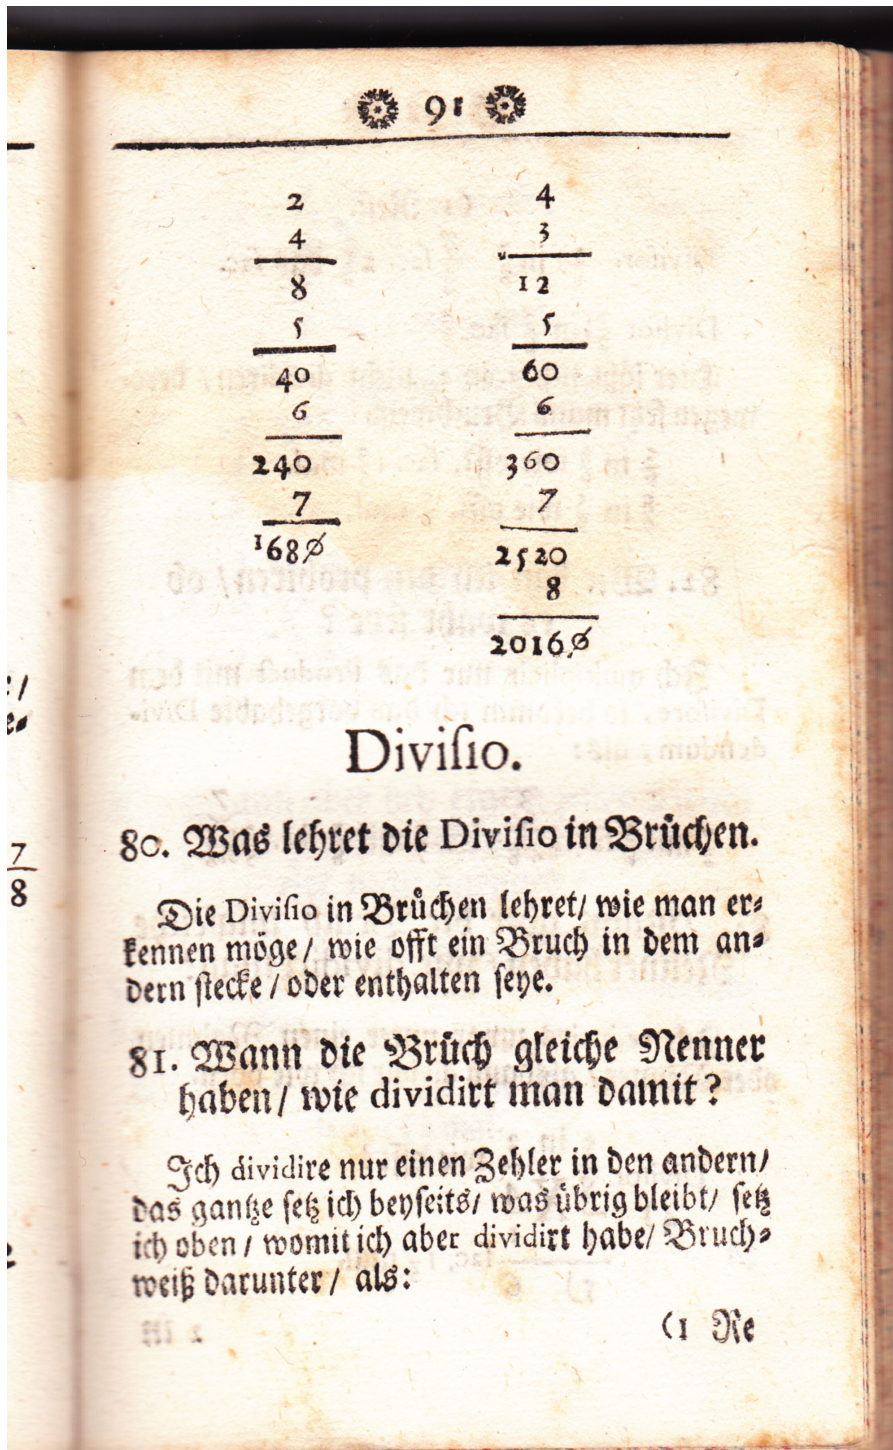 91
2
4
8
5
40
6
240
7
1680
4
3
12
5
60
6
360
7
2520
8
20160
Diviſio.
80. Was lehret die Diviſio in Brüchen.
Die Diviſio in Bruͤchen lehret/ wie man er⸗
kennen möge / wie offt ein Bruch in dem an⸗
dern ſtecke / oder enthalten ſeye.
81. Wann die Brüch gleiche Nenner
haben/ wie dividirt man damit?
Ich dividire nur einen Zehler in den andern/
das gantze ſetz ich beyſeits/ was übrig bleibt/ ſetz
ich oben / womit ich aber dividirt habe/ Bruch⸗
weiß darunter / als:
(1 Re
7
8